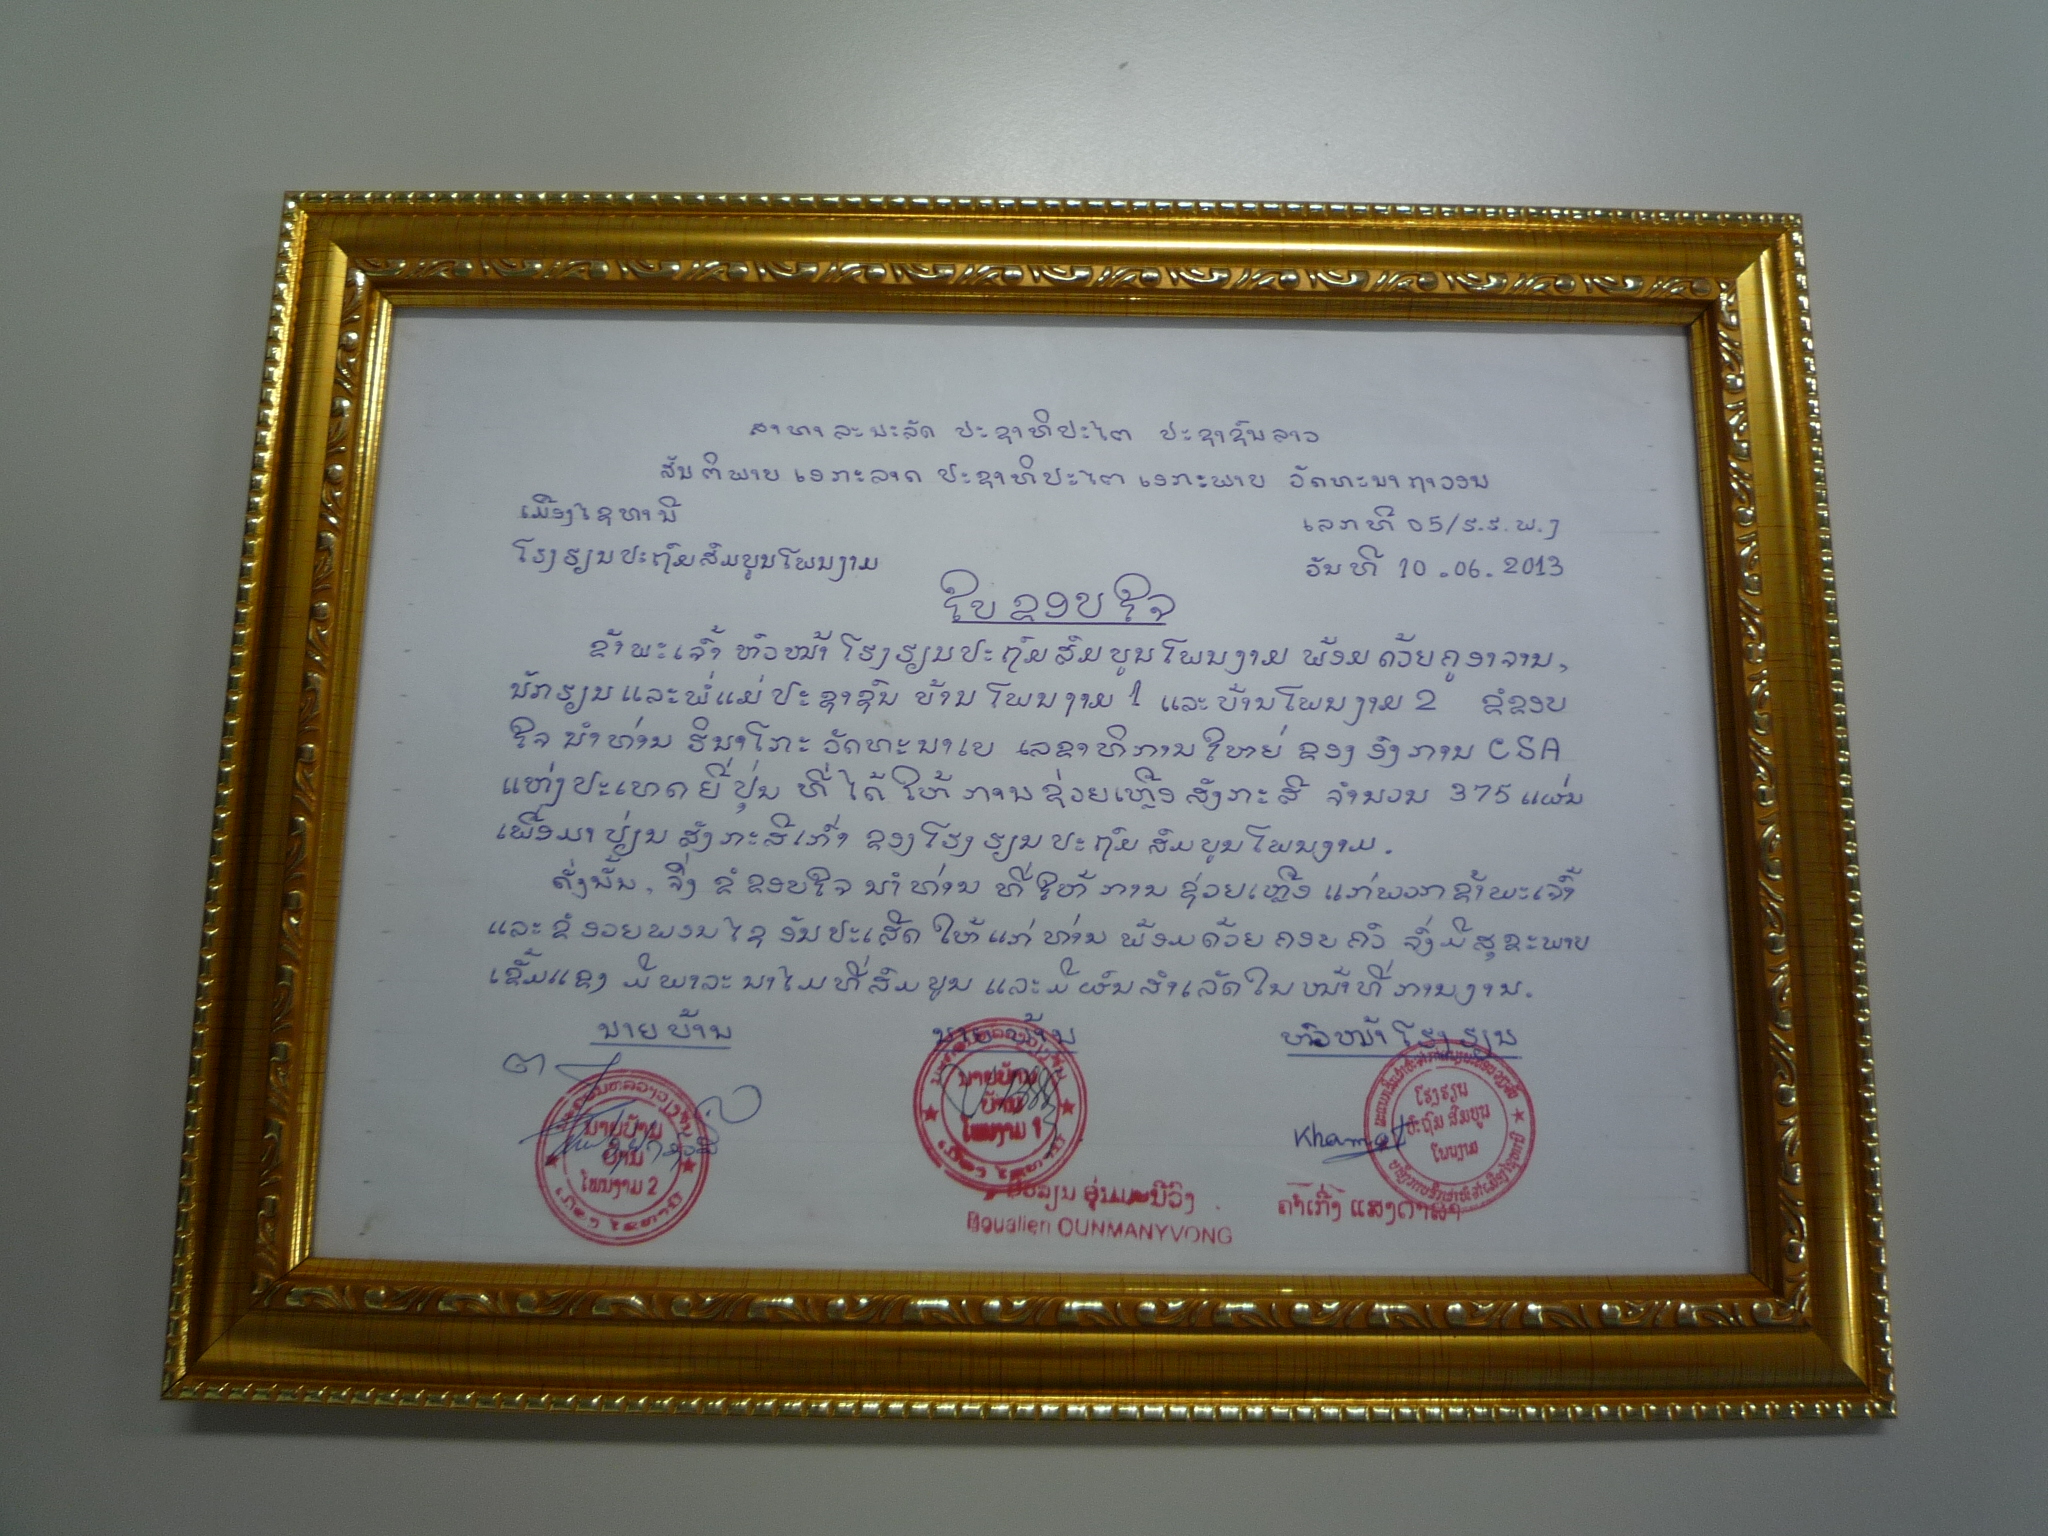 ສາທາລະນະລັດ ປະຊາທິປະໄຕ ປະຊາຊົນລາວ
ສັນຕິພາບ ເອກະລາດ ປະຊາທິປະໄຕ ເອກະພາບ ວັດທະນາຖາວອນ
ເມືອງໄຊທານີ
ເລກທີ 05/ຮ.ຮ.ພ.ງ
ໂຮງຮຽນປະຖົມສົມບູນໂພນງາມ
ວັນທີ 10.06.2013
ໃບຂອບໃຈ
ຂ້າພະເຈົ້າ ຫົວໜ້າໂຮງຮຽນປະຖົມສົມບູນໂພນງາມ ພ້ອມດ້ວຍຄູອາຈານ,
ນັກຮຽນແລະພໍ່ແມ່ປະຊາຊົນ ບ້ານໂພນງາມ 1 ແລະບ້ານໂພນງາມ 2 ຂໍຂອບ
ໃຈ ນໍາທ່ານ ຮິນາໂກະ ວັດທະນາເບ ເລຂາທິການໃຫຍ່ ຂອງ ອົງການ CSA
ແຫ່ງປະເທດຍີ່ປຸ່ນ ທີ່ໄດ້ໃຫ້ການຊ່ວຍເຫຼືອ ສັງກະສີ ຈໍານວນ 375 ແຜ່ນ
ເພື່ອມາປ່ຽນສັງກະສີເກົ່າ ຂອງໂຮງຮຽນປະຖົມສົມບູນໂພນງາມ.
ດັ່ງນັ້ນ, ຈຶ່ງ ຂໍຂອບໃຈ ນໍາທ່ານ ທີ່ໃຫ້ການຊ່ວຍເຫຼືອ ແກ່ພວກຂ້າພະເຈົ້າ
ແລະຂໍອວຍພອນໄຊອັນປະເສີດ ໃຫ້ແກ່ທ່ານ ພ້ອມດ້ວຍຄອບຄົວ ຈົ່ງມີສຸຂະພາບ
ເຂັ້ມແຂງ ມີພາລະນາໄມທີ່ສົມບູນ ແລະມີຜົນສໍາເລັດໃນໜ້າທີ່ການງານ.
ນາຍບ້ານ ນາຍບ້ານ ຫົວໜ້າໂຮງຮຽນ
ນາຍບ້ານ
ບ້ານ
ໂພນງາມ 2
ນາຍບ້ານ
ບ້ານ
ໂພນງາມ 1
ໂຮງຮຽນ
ປະຖົມສົມບູນ
ໂພນງາມ
Boualien OUNMANYVONG